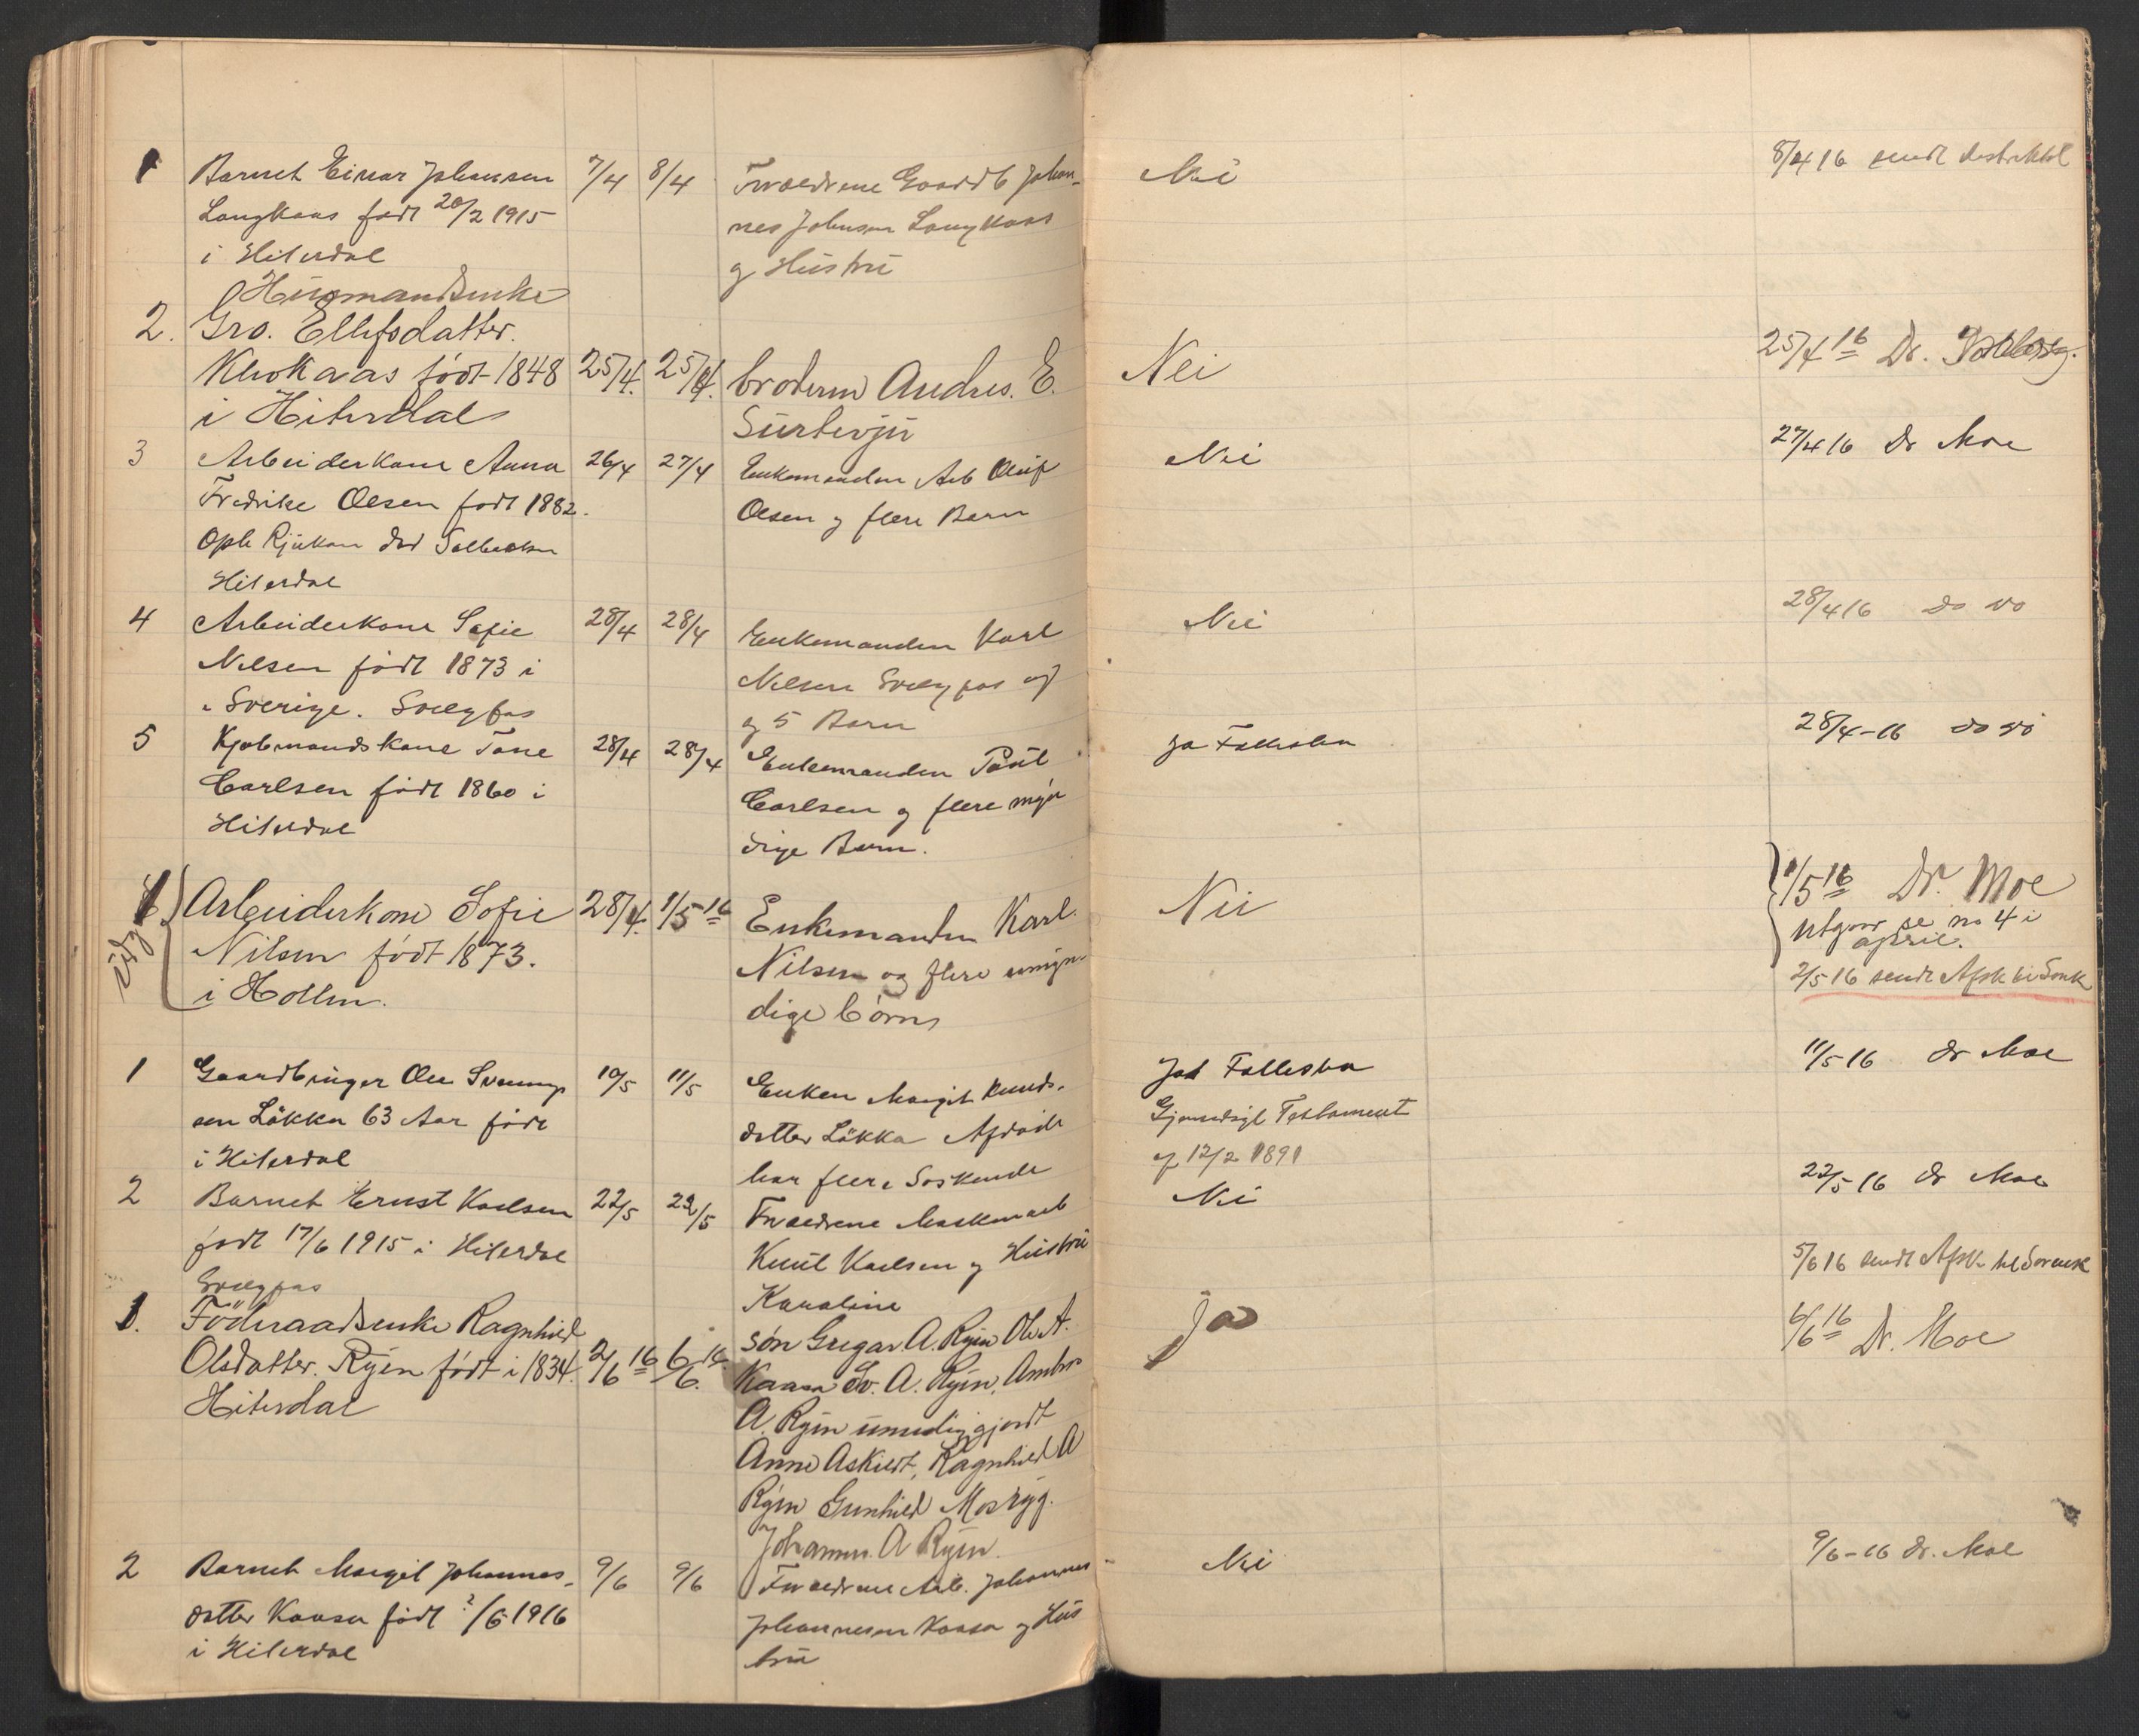 1 Barnet Einar Johansen 7/4 8/4 Forældrene Gaardb Johan- Nei 8/4 16 sendt
Langkaas født 20/2 1915 nes Johnsen Langkaas
i Hiterdal og Hustru
Husmandsenke
2. Gro. Ellefsdatter.
Klrokaas født 1848 25/4. 25/4. broderen Andres. E. Nei 25/4 16 Dr.
i Hiterdal Surtevju
3 Arbeiderkone Anna 26/4 27/4 Enkemanden Arb Oluf Nei 27/4 16 Dr Moe
Fredrike Olsen født 1882. Olsen og flere Barn
Oph Rjukan død
Hiterdal
4 Arbeiderkone Sofie 28/4 28/4 Enkemanden Karl Nei 28/4 16 do do
Nilsen født 1873 i Nilsen Svelgfos og
Sverige. Svelgfos og 5 Barn
5 Kjøbmandskone Tone 28/4 28/4 Enkemanden Paul ja Fellesbo 28/4-16 do do
Carlsen født 1860 i Carlsen og flere myn
Hiterdal dige Barn.
1 Arbeiderkone Sofie 28/4. 1/5 16 Enkemanden Karl. Nei 1/5 16 Dr. Moe
Udg Nilsen født 1873. Nilsen og flere umyn- Utgaar se no 4 i
april.
i Hollen. dige børn 2/5 16 sendt Afsk til Sorsk
1 Gaardbruger Ole Svenungs 10/5 11/5 Enken Margit Knuds- Ja Fellesbo 11/5 16 Dr Moe
sen Løkka 63 Aar født datter Løkka Afdøde Gjensidigt Testament
i Hiterdal har flere Søskende af 12/2 1891
2 Barnet Ernst Karlsen 22/5 22/5 Forældrene Maskinarb Nei 22/5 16 Dr Moe
født 17/6 1915 i Hiterdal Knut Karlsen og Hustru 5/6 16 sendt Afsk. til Sorensk
Svelgfos Karoline
1. Føderaadsenke Ragnhild søn Gregar A. Ryen Ole A. Ja 6/6 16 Dr. Moe
Olsdatter. Ryen født i 1834. 2/6 16 6/6. 16. Kaasa Sv. A. Ryen, Ambro
Hiterdal A. Ryen umyndiggjordt
Anne Askildt, Ragnhild A
Ryen Gunhild Mosbyg.
Johannes. A Ryen.
2 Barnet Margit Johannes- 9/6 9/6 Forældrene Arb. Johannes Nei 9/6-16 Dr. Moe
datter Kaasa født ?/6 1916 Johannesen Kaasa og Hus
i Hiterdal tru